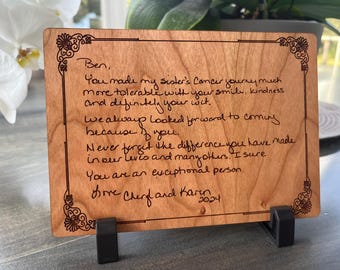 Ben,
You made my sister's cancer journey much
more tolerable with your smile, kindness
and definitely your wit.
We always looked forward to coming
because of you.
Never forget the difference you have made
in our lives and many others, I'm sure
You are an exceptional person.
Love Cheryl and Karen
2024